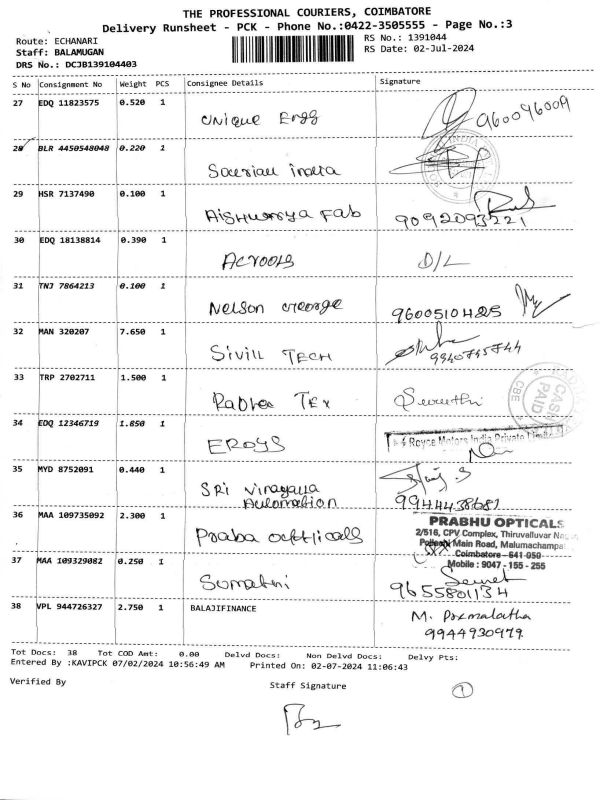 THE PROFESSIONAL COURIERS, COIMBATORE
Delivery Runsheet - PCK - Phone No.:0422-3505555 - Page No.:3
Route: ECHANARI
Staff: BALAMUGAN
DRS No.: DCJB139104403
RS No.: 1391044
RS Date: 02-Jul-2024
S No Consignment No Weight PCS Consignee Details Signature
27 EDQ 11823575 0.520 1 Unique Engg 960096009
28 BLR 4450548048 0.220 1 india
29 HSR 7137490 0.100 1 Aishwarya Fab 9092093221
30 EDQ 18138814 0.390 1 D/L
31 TNJ 7864213 0.100 1 Nelson George 9600510425
32 MAN 320207 7.650 1 Sivill TECH 9940745744
33 TRP 2702711 1.500 1 Tex
CASH PAID
CBE
34 EDQ 12346719 1.850 1 EROYS
Royce Motors India Private Limited
35 MYD 8752091 0.440 1 SRi Vinayaga
Automation 9944438681
36 MAA 109735092 2.300 1 Praba
PRABHU OPTICALS
2/516, CPV Complex, Thiruvalluvar
Pollachi Main Road, Malumachampa
Coimbatore - 641 050
Mobile : 9047 - 155 - 255
37 MAA 109329082 0.250 1 Sumathi 9655801134
38 VPL 944726327 2.750 1 BALAJIFINANCE M.
9944930979
Tot Docs: 38 Tot COD Amt: 0.00 Delvd Docs: Non Delvd Docs: Delvy Pts:
Entered By :KAVIPCK 07/02/2024 10:56:49 AM Printed On: 02-07-2024 11:06:43
Verified By Staff Signature 1